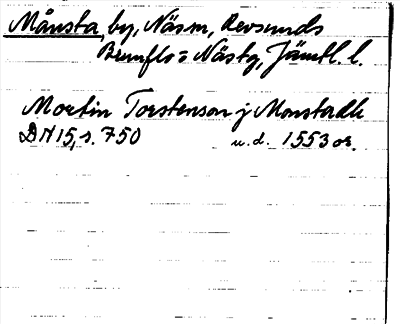 Månsta, by, Näs sn, Revsunds
Brunflo o Näs tg, Jämtl. l.
Mortin Torstenson j Monstadh
DN 15, s. 750 u.d. 1553 or.